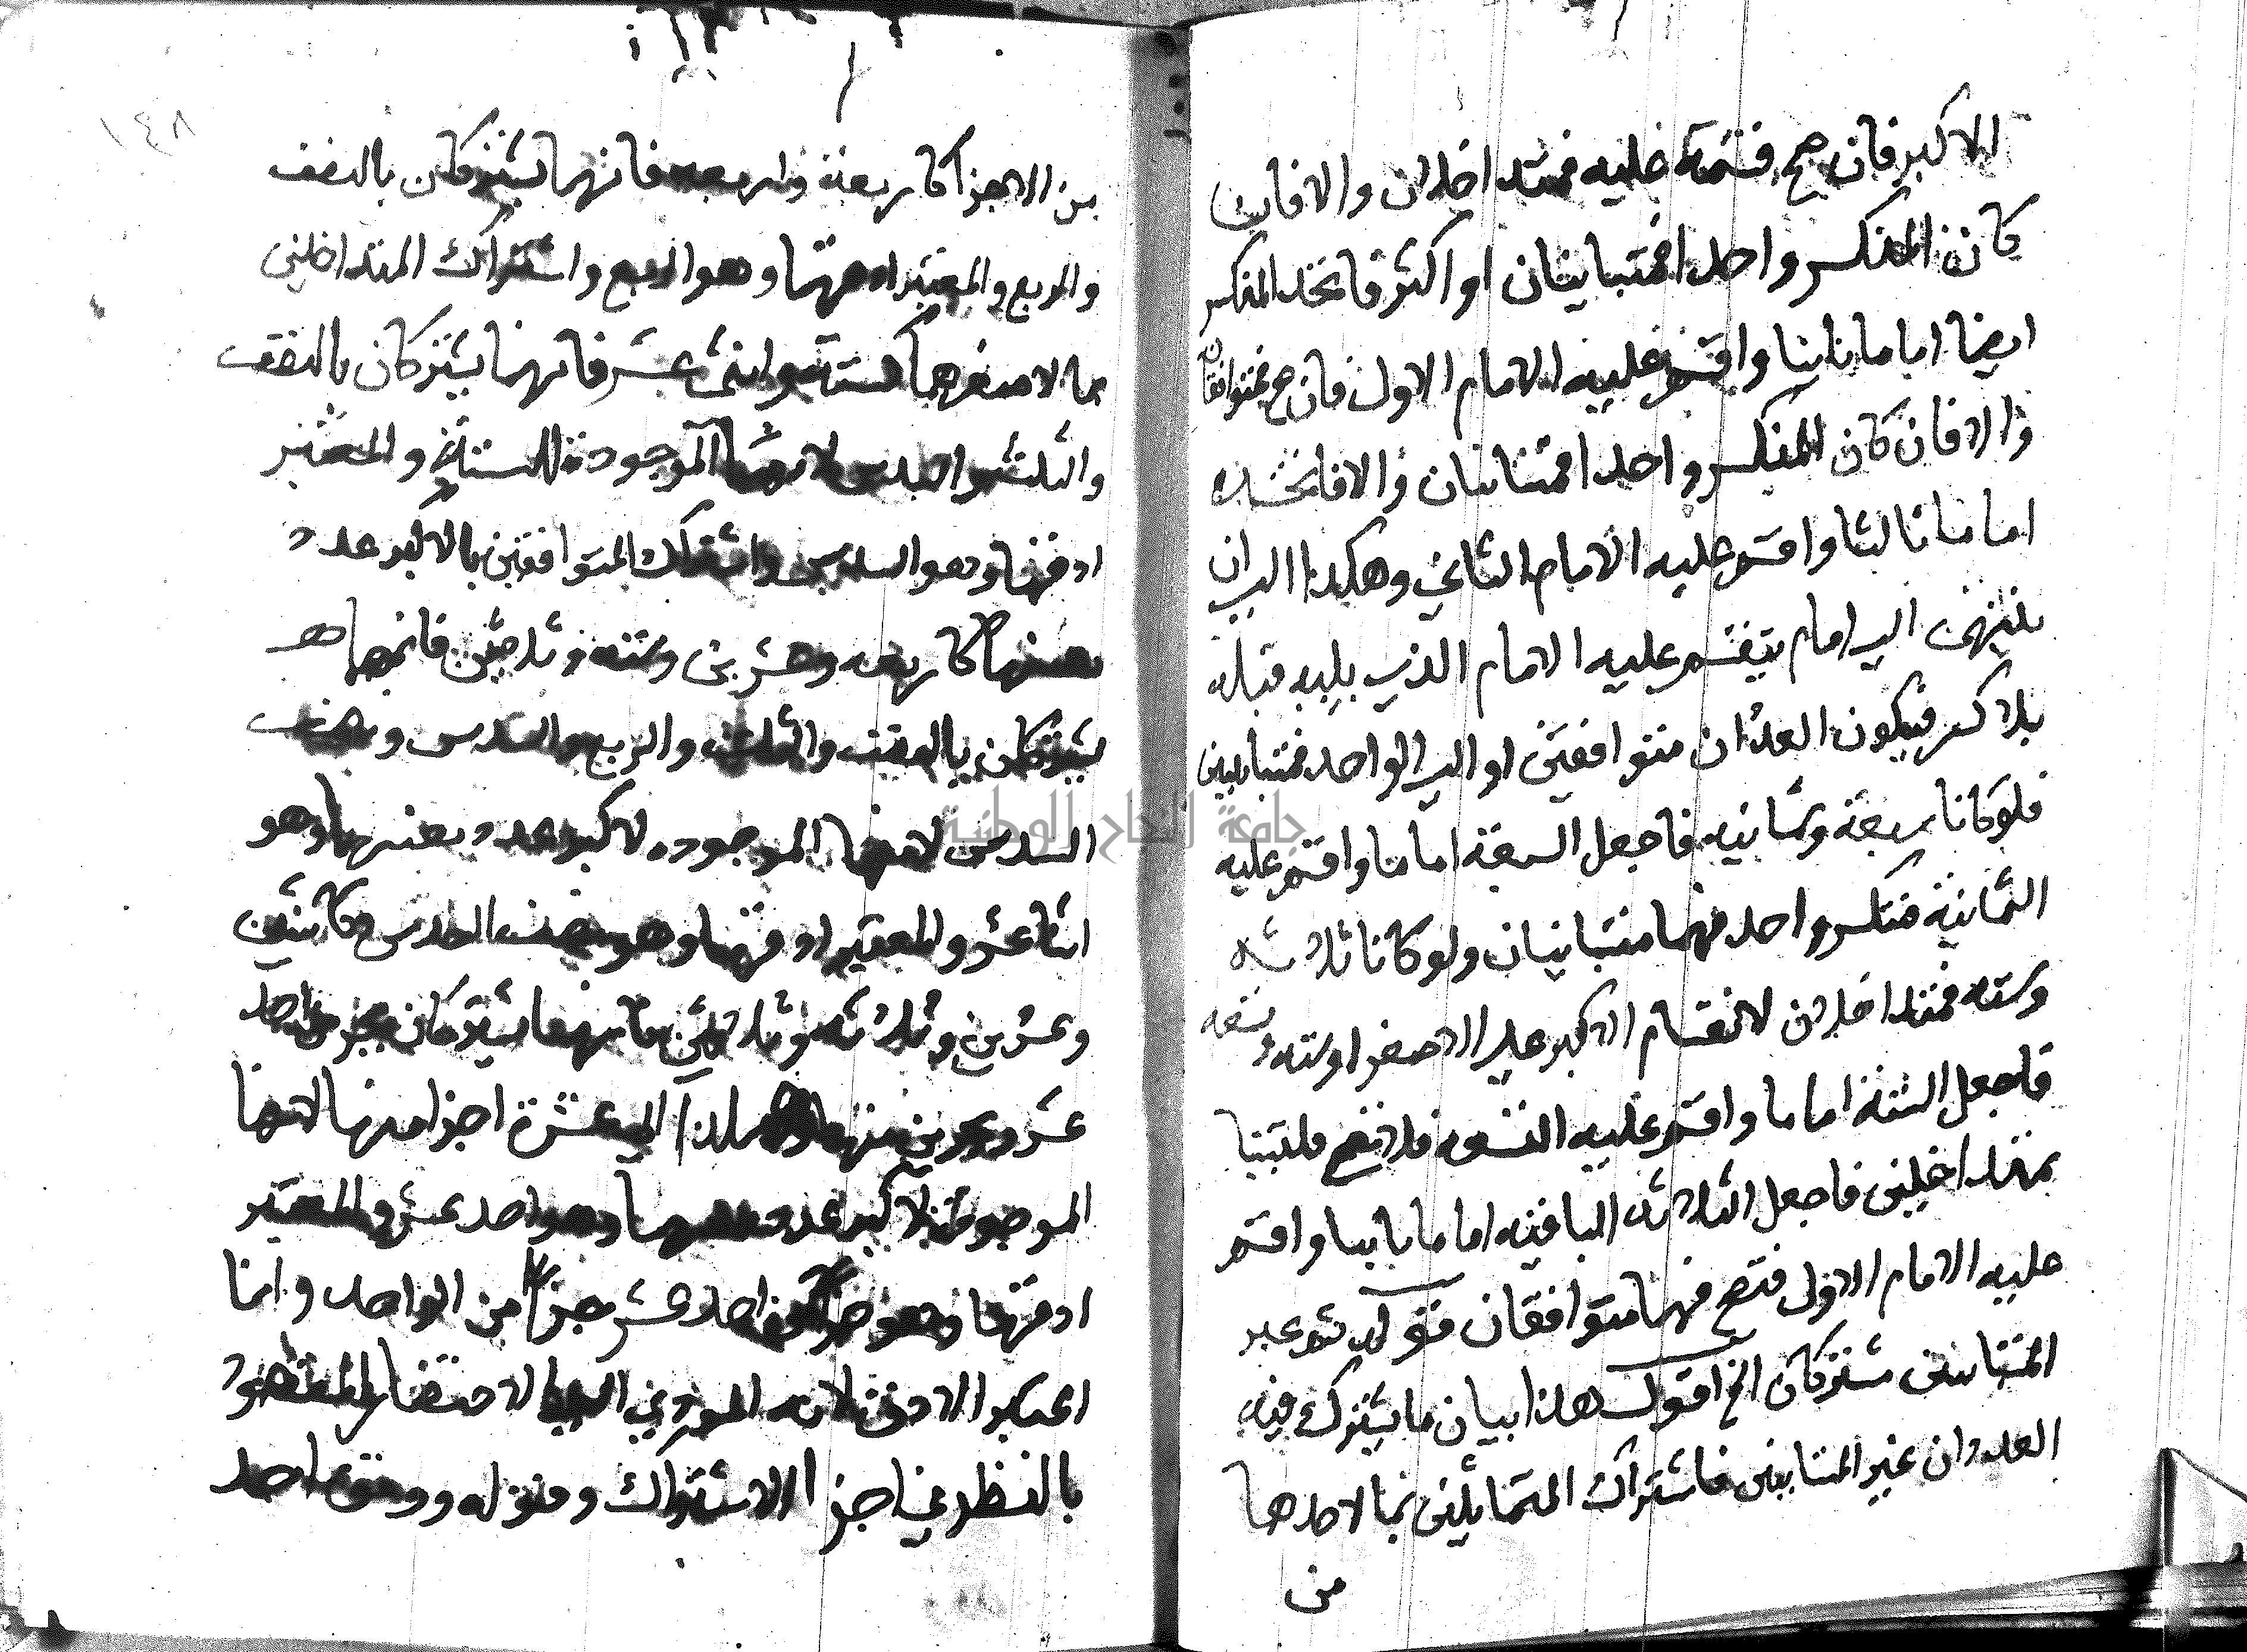 الاكبر فان صح قسمة عليه فمتداخلان والا فان
كان المنكسر واحدا فمتباينان او اكثر فاتخذ المنكسر
ايضا اماما ثانيا واقسم عليه الامام الاول فان صح فمتوافقان
والا فان كان المنكسر واحدا فمتباينان والا فاتخذه
اماما ثالثا واقسم عليه الامام الثاني وهكذا الى ان
ينتهى الى امام ينقسم عليه الامام الذي يليه قبله
بلا كسر فيكون العددان متوافقين او الى الواحد فمتباينين
فلو كانا سبعة وثمانيه فاجعل السبعة اماما واقسم عليه
الثمانية فتكسر واحد فهما متباينان ولو كانا ثلاثه
وسته فمتداخلان لانقسام الاكبر على الاصغر او سته وتسعه
فاجعل الستة اماما واقسم عليه التسعه فلا تصح فليتبنا
بمتداخلين فاجعل الثلاثه الباقيه اماما ثانيا واقسم
عليه الامام الاول فتصح فهما متوافقان قوله ثم غير
المتباينين مشتركان الخ اقول هذا بيان ما يشترك فيه
العددان غير المتباينين فاشتراك المتماثلين بما لاحدهما
من
من الاجزا كاربعة واربعه فانهما يشتركان بالنصف
والربع والمعتبر ادقهما وهو الربع واشتراك المتداخلين
بما لاصغرهما كستة واثنى عشر فانهما يشتركان بالنصف
والثلث والسدس لانها الموجودة للستة والمعتبر
ادقها وهو السدس واشتراك المتوافقين بما لاكبر عدد
يعنيهما كاربعه وعشرين وسته وثلاثين فانهما
يشتركان بالنصف والثلث والربع والسدس ونصف
السدس لانها الموجوده لاكبر عدد يفنيهما وهو
اثنا عشر والمعتبر ادقها وهو نصف السدس وكاثنين
وعشرين وثلاثه وثلاثين فانهما يشتركان بجزء من احد
عشر وبجزئين منها وهكذا الى عشرة اجزا منها لانها
الموجودة لاكبر عدد يفنيهما وهو احد عشر والمعتبر
ادقها وهو جزء من احد عشر جزا من الواحد وانما
اعتبر الادق لانه المودي الى الاختصار المقصود
بالنظر في اجزا الاشتراك وقوله ووفق احد
جامعة النجاح الوطنية
١٤٨